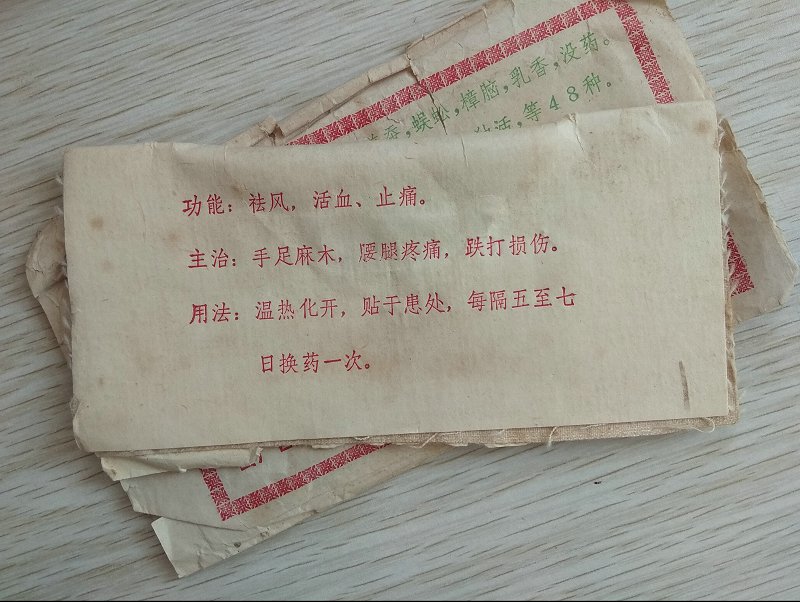 蜈蚣，樟脑，乳香，没药。
活，等48种．
功能：祛风，活血、止痛。
主治：手足麻木，腰腿疼痛，跌打损伤。
用法：温热化开，贴于患处，每隔五至七
日换药一次。